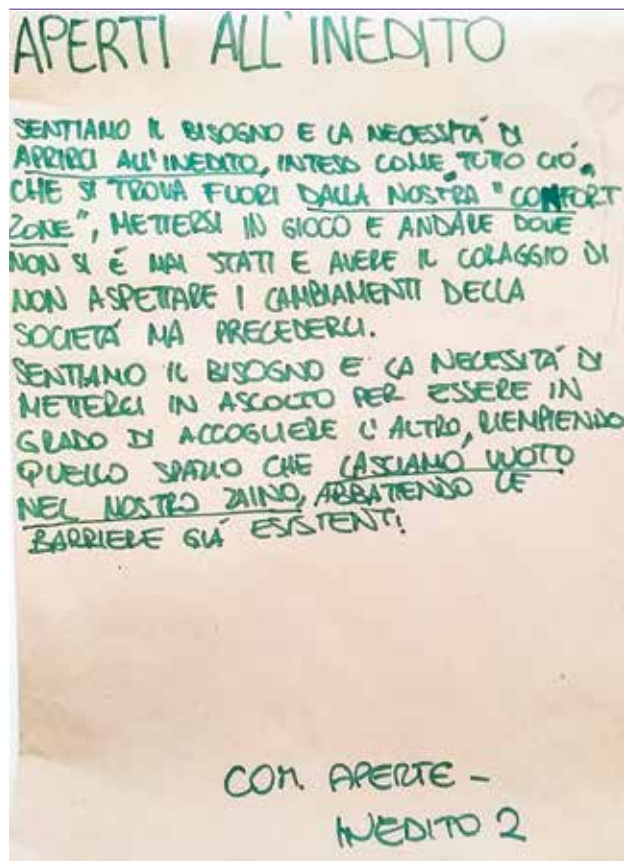 APERTI ALL'INEDITO
SENTIAMO IL BISOGNO E LA NECESSITÀ DI
APRIRCI ALL'INEDITO, INTESO COME TUTO CIÓ,
CHE SI TROVA FUORI DALLA NOSTRA "COMFORT
ZONE", METTERSI IN GIOCO E ANDARE DOVE
NON SI È MAI STATI E AVERE IL CORAGGIO DI
NON ASPETTARE I CAMBIAMENTI DELLA
SOCIETÁ MA PRECEDERLI.
SENTIAMO IL BISOGNO E LA NECESSITÁ DI
METTERCI IN ASCOLTO PER ESSERE IN
GRADO DI ACCOGLIERE L'ALTRO, RIEMPIENDO
QUELLO SPAZIO CHE LASCIAMO VUOTO
NEL NOSTRO ZAINO, ABBATTENDO LE
BARRIERE GIÁ ESISTENTI.
COM. APERTE -
INEDITO 2